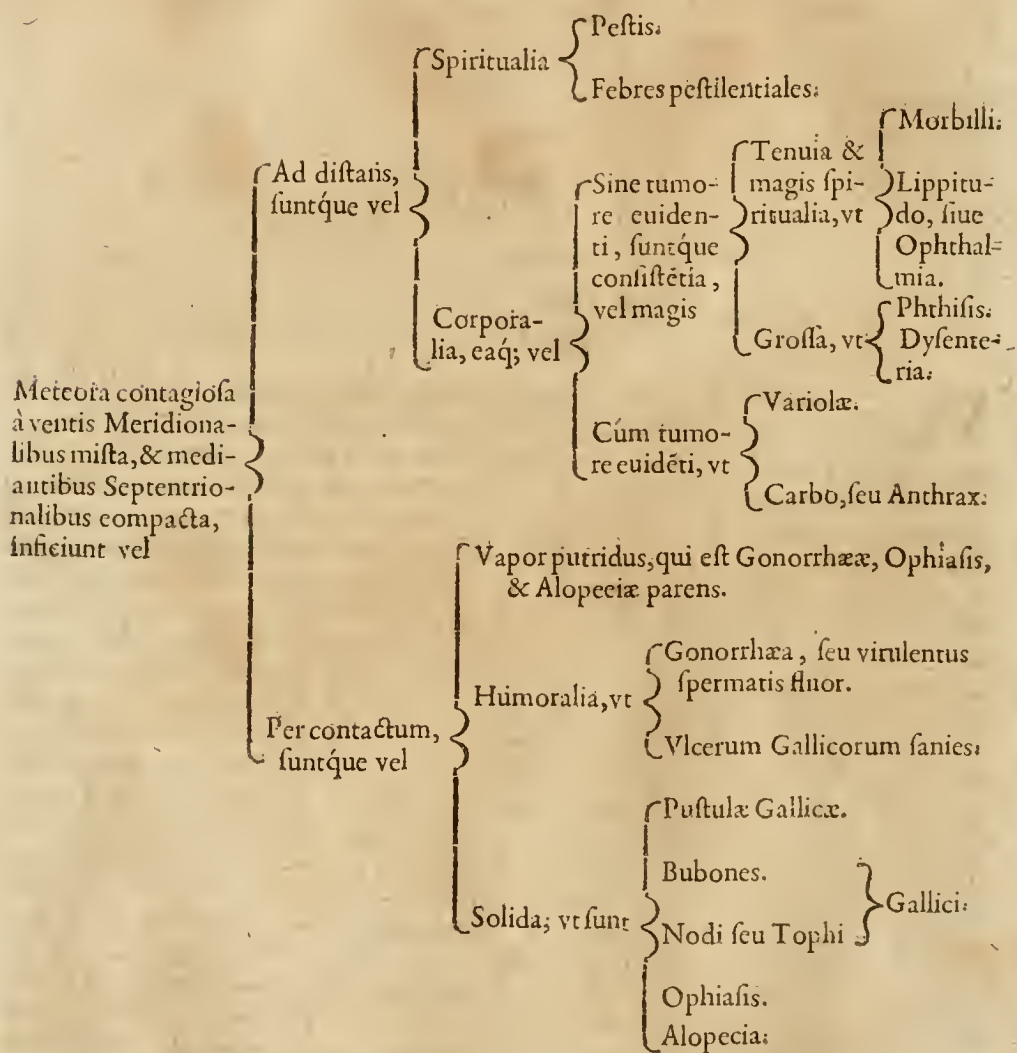 Meteora contagiosa
à ventis Meridiona-
libus mista, & medi-
antibus Septentrio-
nalibus compacta,
inficiunt vel
Ad distans,
suntq́ue vel
Spiritualia
Pestis.
Febres pestilentiales.
Corpora-
lia, eaq; vel
Sine tumo-
re euiden-
ti, suntq́ue
consistẽtia,
vel magis
Tenuia &
magis spi-
ritualia, vt
Morbilli.
Lippitu-
do, siue
Ophthal-
mia.
Grossa, vt
Phthisis.
Dysente-
ria.
Cúm tumo-
re euidẽti, vt
Variolæ.
Carbo, seu Anthrax.
Per contactum,
suntq́ue vel
Vapor putridus, qui est Gonorrhææ, Ophiasis,
& Alopeciæ parens.
Humoralia, vt
Gonorrhæa, seu virulentus
spermatis fluor.
Vlcerum Gallicorum sanies.
Solida; vt sunt
Pustulæ Gallicæ.
Bubones.
Nodi seu Tophi
Gallici.
Ophiasis.
Alopecia.